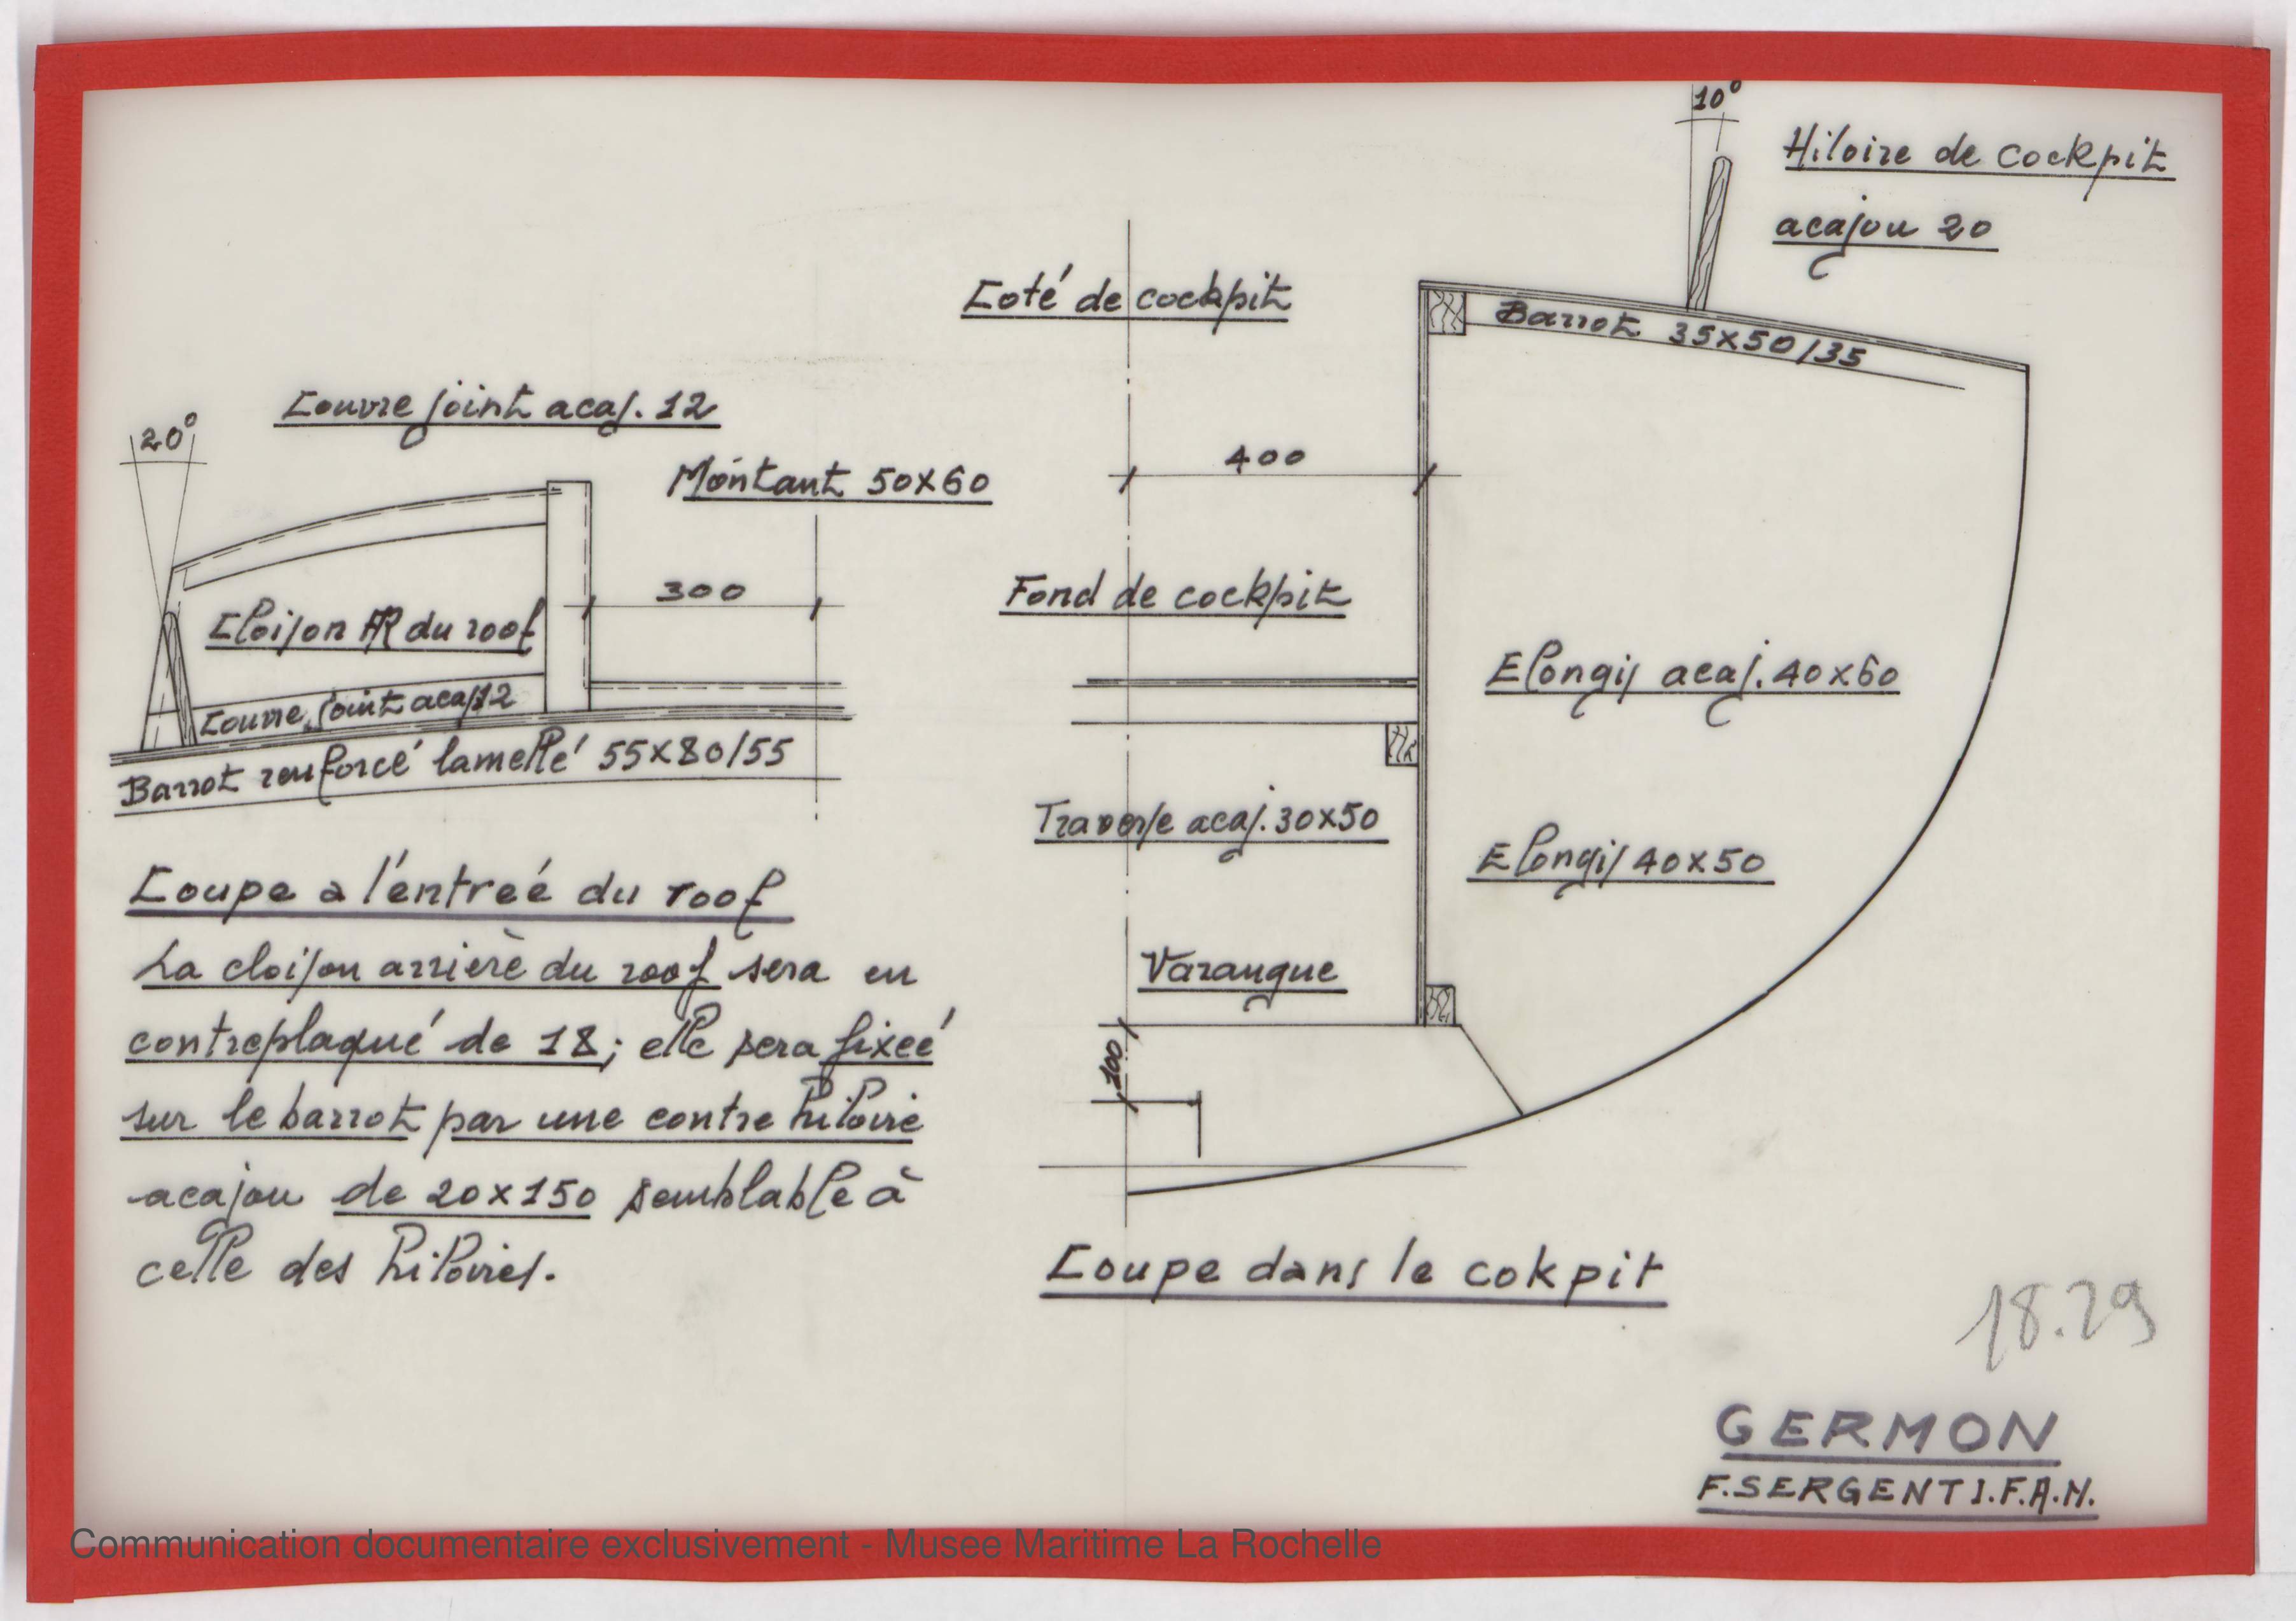 10°
Hiloire de cockpit
acajou 20
Coté de cockpit
Barrot 35x50/35
Couvre joint acaj. 12
20°
Montant 50x60
400
300
Fond de cockpit
Cloison AR du roof
Elongis acaj. 40x60
Couvre joint acaj 12
Barrot renforcé lamellé 55x80/55
Traverse acaj. 30x50
Elongis 40x50
Coupe a l'entreé du roof
La cloison arrière du roof sera en
contreplaqué de 18; elle sera fixeé
sur le barrot par une contre hiloire
acajou de 20x150 semblable à
celle des hiloires.
Varangue
100
Coupe dans le cokpit
18.29
GERMON
F. SERGENT I.F.A.N.
Communication documentaire exclusivement - Musee Maritime La Rochelle